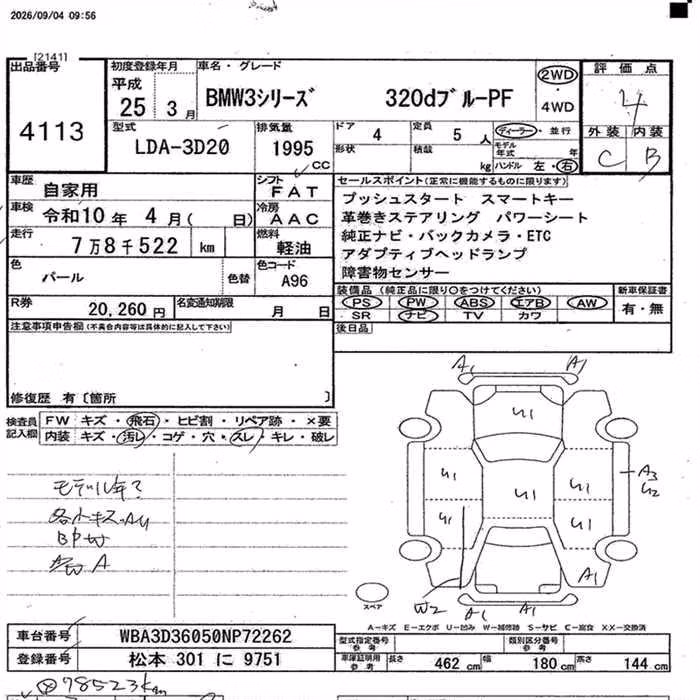 2026/09/04 09:56
[2141]
出品番号
4113
初度登録年月
平成
25 3 月
車名・グレード
BMW3シリーズ 320dブルーPF
2WD
4WD
評価点
4
外装 内装
C B
型式
LDA-3D20
排気量
1995
CC
ドア 4
定員 5 人
形状
積載 kg
ディーラー・並行
モデル年式 年
ハンドル 左・右
車歴
自家用
シフト
FAT
車検
令和10年 4月( 日)
冷房
AAC
走行
7万8千522 km
燃料
軽油
色
パール
色替
色コード
A96
R券
20,260円
名変通知期限
月 日
セールスポイント(正常に機能するものに限ります)
プッシュスタート スマートキー
革巻きステアリング パワーシート
純正ナビ・バックカメラ・ETC
アダプティブヘッドランプ
障害物センサー
装備品(純正品に限り○をつけてください)
PS PW ABS エアB AW
SR ナビ TV カワ
新車保証書
有・無
後日品
注意事項申告欄(不具合内容等は具体的に記入して下さい)
修復歴 有〔箇所 〕
検査員記入欄
FW キズ・飛石・ヒビ割・リペア跡・×要
内装 キズ・汚レ・コゲ・穴・スレ・キレ・破レ
モデル年?
各小キズ・AU
A
A1 A1
U1
U1 U1 U1
U1 U1
A3
U2
W2
A1
A1 A1
スペア
A-キズ E-エクボ U-凹み W-補修跡 S-サビ C-腐食 XX-交換済
車台番号
WBA3D36050NP72262
登録番号
松本 301 に 9751
型式指定番号
参考
類別区分番号
参考
車庫証明用
参考
長さ 462 cm 幅 180 cm 高さ 144 cm
78523km